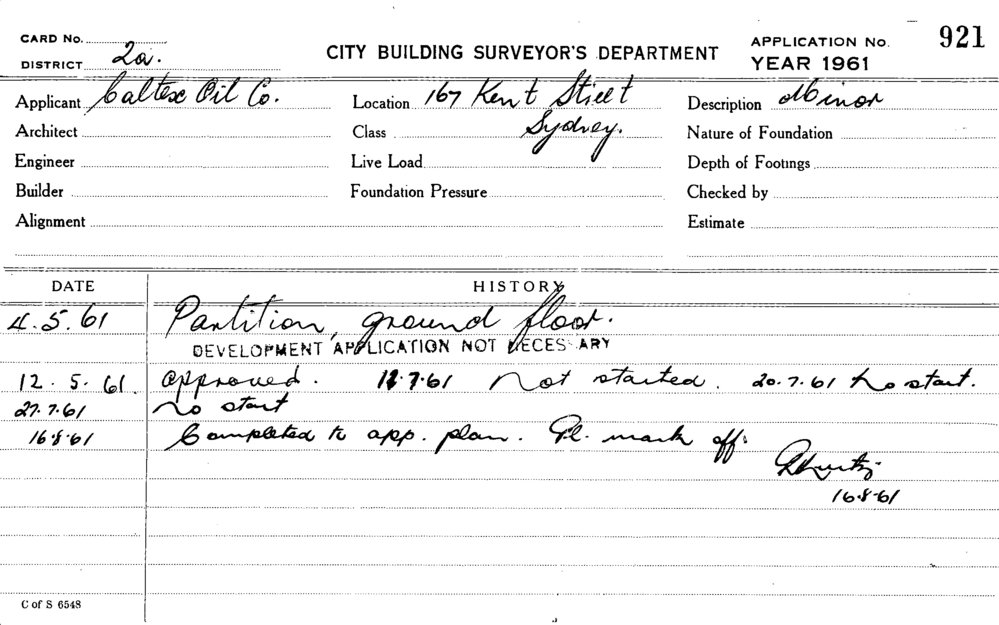 CARD No.
DISTRICT 2a.
CITY BUILDING SURVEYOR'S DEPARTMENT
APPLICATION No. 921
YEAR 1961
Applicant Caltex Oil Co. Location 167 Kent Street Description Minor
Architect Class Sydney. Nature of Foundation
Engineer Live Load Depth of Footings
Builder Foundation Pressure Checked by
Alignment Estimate
DATE HISTORY
4.5.61 Partition, ground floor.
DEVELOPMENT APPLICATION NOT NECESSARY
12.5.61. approved. 12.7.61 Not started. 20.7.61 No start.
27.7.61 No start
16.8.61 Completed to app. plan. Pl. mark off.
16.8.61
C of S 6548